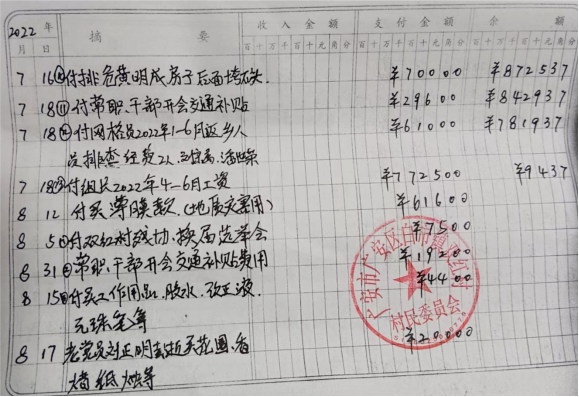 2022年 摘 要 收入金额 支付金额 余 额
月 日 百十万千百十元角分 百十万千百十元角分 百十万千百十元角分
7 16 付排危黄明成房子后面垮石头. ¥70000 ¥872537
7 18 ⑪ 付常职、干部开会交通补贴 ¥29600 ¥842937
7 18 付网格员2022年1-6月返乡人 ¥61000 ¥781937
员排查经费2人
7 18 付组长2022年4-6月工资 ¥772500 ¥9437
8 12 付买薄膜款.(地质灾害用) ¥61600
8 5 付双红村残协、换届选举会 ¥7500
8 31 常职、干部开会交通补贴费用 ¥19200
8 15 付买工作用品、胶水、改正液、 ¥4400
元珠笔等
8 17 老党员刘正明去逝买花圈、香 ¥20000
烛等
广安市广安区白市镇双红村
村民委员会